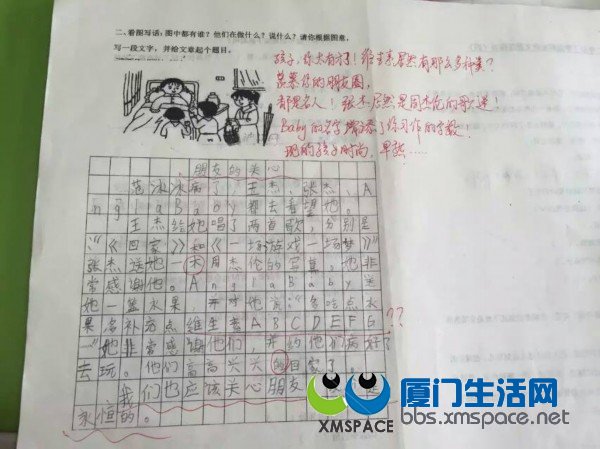 二、看图写话:图中都有谁?他们在做什么?说什么?请你根据图意,
写一段文字,并给文章起个题目。
孩子,你太有才了!维生素居然有那么多种类?
羡慕你的朋友圈,
都是名人!张杰居然是周杰伦的
Baby的名字 了你习作的字数!
现的孩子时尚,早
朋友的关心
范冰冰病了,王杰、张杰、A
nglaBaby都去看望她。
王杰给她唱了两首歌,分别是
:《回家》和《一场游戏一场梦》
张杰送她 周杰伦的写真,她非
常感谢他。AnglaBaby送
她一篮水果,并对她说:"多吃点水
果,多补充点维生素ABCDEFG
"她非常感谢他们,并约他们病好了
去玩。他们高高兴兴的回家了。
我们也应该关心朋友
永恒的。
??
厦门生活网
XMSPACE
bbs.xmspace.net